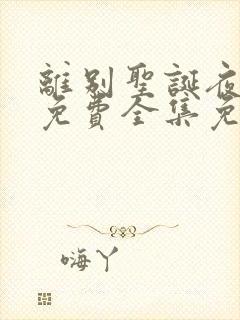 離别聖誕夜
免費全集免
嗨丫